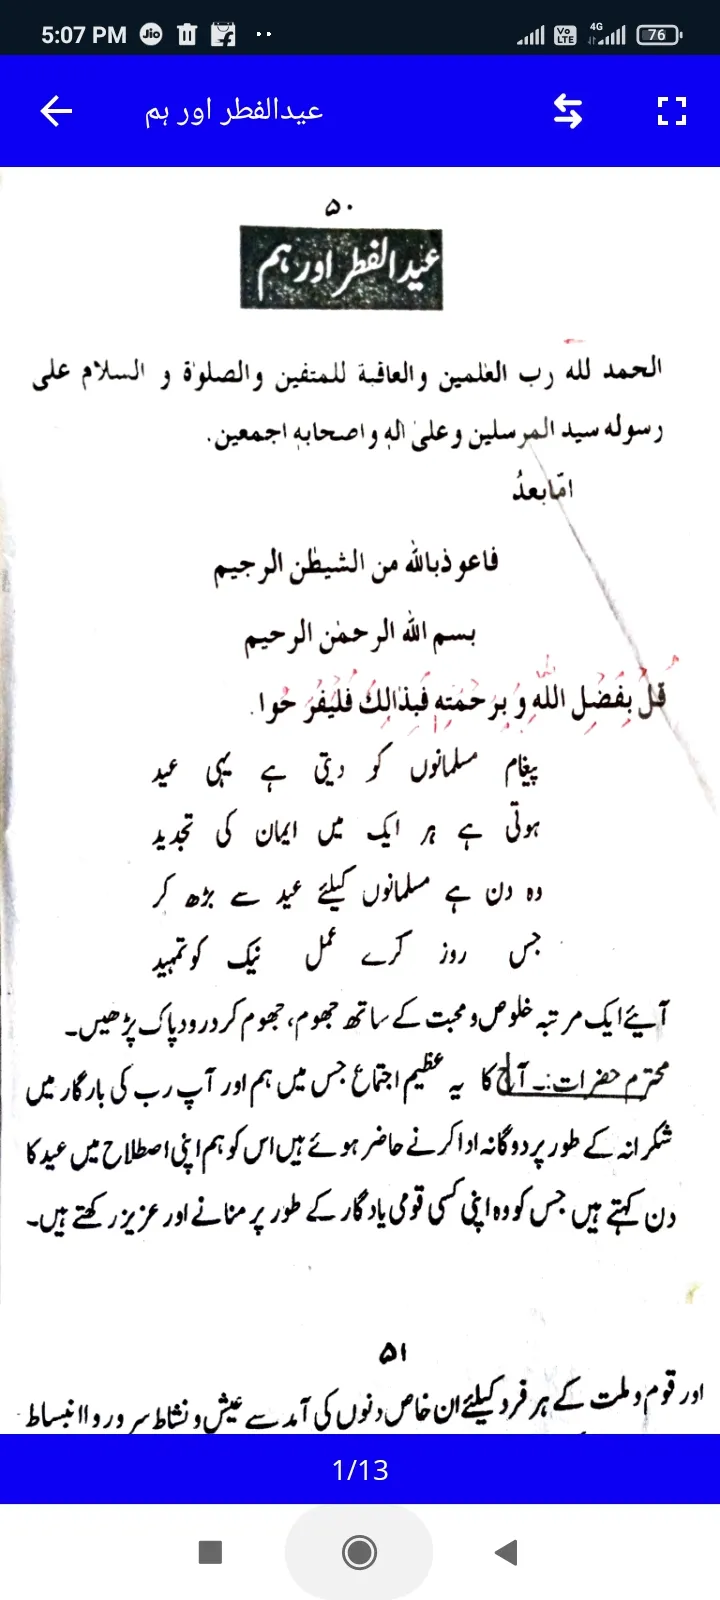 5:07 PM
4G
Vo LTE
76
عیدالفطر اور ہم
۵۰
عید الفطر اور ہم
الحمد لله رب العٰلمین والعاقبة للمتفین والصلوٰة و السلام علی
رسوله سید المرسلین و علیٰ الهٖ و اصحابهٖ اجمعین.
امّا بعدُ
فاعوذبالله من الشیطٰن الرجیم
بسم الله الرحمٰن الرحیم
قُلْ بِفَضْلِ اللّٰهِ وَ بِرَحْمَتِهٖ فَبِذَالِكَ فَلْیَفْرَحُوا.
پیغام مسلمانوں کو دیتی ہے یہی عید
ہوتی ہے ہر ایک میں ایمان کی تجدید
وہ دن ہے مسلمانوں کیلئے عید سے بڑھ کر
جس روز کرے عمل نیک کو تمہید
آیئے ایک مرتبہ خلوص و محبت کے ساتھ جھوم، جھوم کر درود پاک پڑھیں۔
محترم حضرات:۔ آج کا یہ عظیم اجتماع جس میں ہم اور آپ رب کی بارگار میں
شکرانہ کے طور پر دوگانہ ادا کرنے حاضر ہوئے ہیں اس کو ہم اپنی اصطلاح میں عید کا
دن کہتے ہیں جس کو وہ اپنی کسی قومی یادگار کے طور پر منانے اور عزیز رکھتے ہیں۔
۵۱
اور قوم و ملت کے ہر فرد کیلئے ان خاص دنوں کی آمد سے عیش و نشاط سرور و اانبساط
1/13